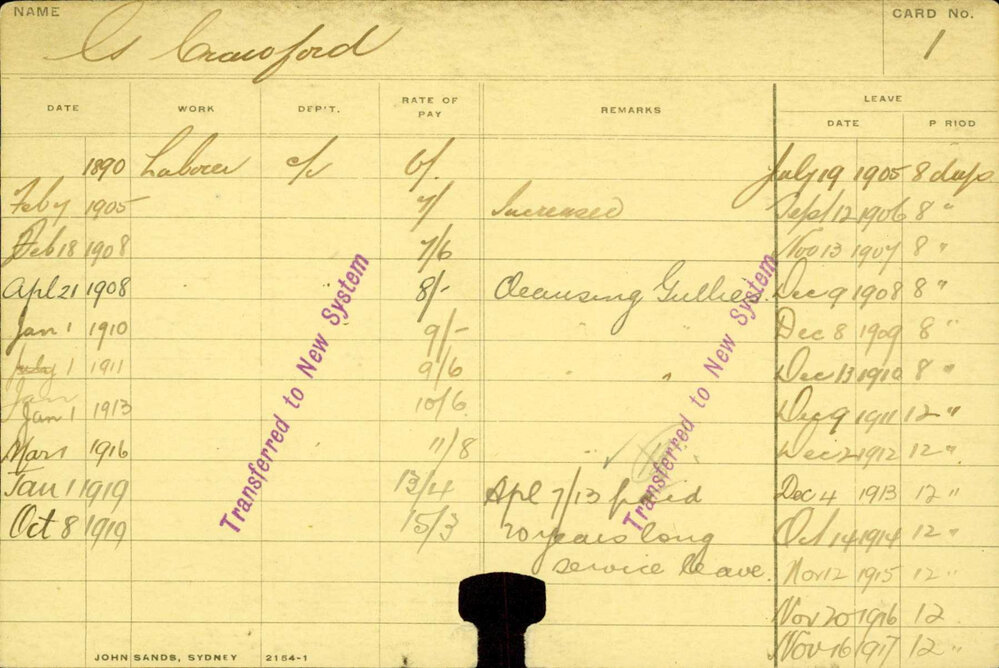 NAME
Crawford
CARD No.
1
DATE WORK DEP'T. RATE OF PAY REMARKS LEAVE
DATE P RIOD
1890 Laborer c/s 6/. July 19 1905 8 days
Feby 1905 7/ Increased Sept 12 1906 8 "
Feb 18 1908 7/6 Nov 13 1907 8 "
Apl 21 1908 8/- Cleansing Gullies. Dec 9 1908 8 "
Jan 1 1910 9/- Dec 8 1909 8 "
July 1 1911 9/6 Dec 13 1910 8 "
Jan
Jan 1 1913 10/6 Dec 9 1911 12 "
Mar 1 1916 11/8 Dec 2 1912 12 "
Jan 1 1919 13/4 Apl 7/13 Dec 4 1913 12 "
Oct 8 1919 15/3 20 years long Oct 14 1914 12 "
service leave. Nov 12 1915 12 "
Nov 20 1916 12
Nov 16 1917 12 "
Transferred to New System
Transferred to New System
JOHN SANDS, SYDNEY 2154-1